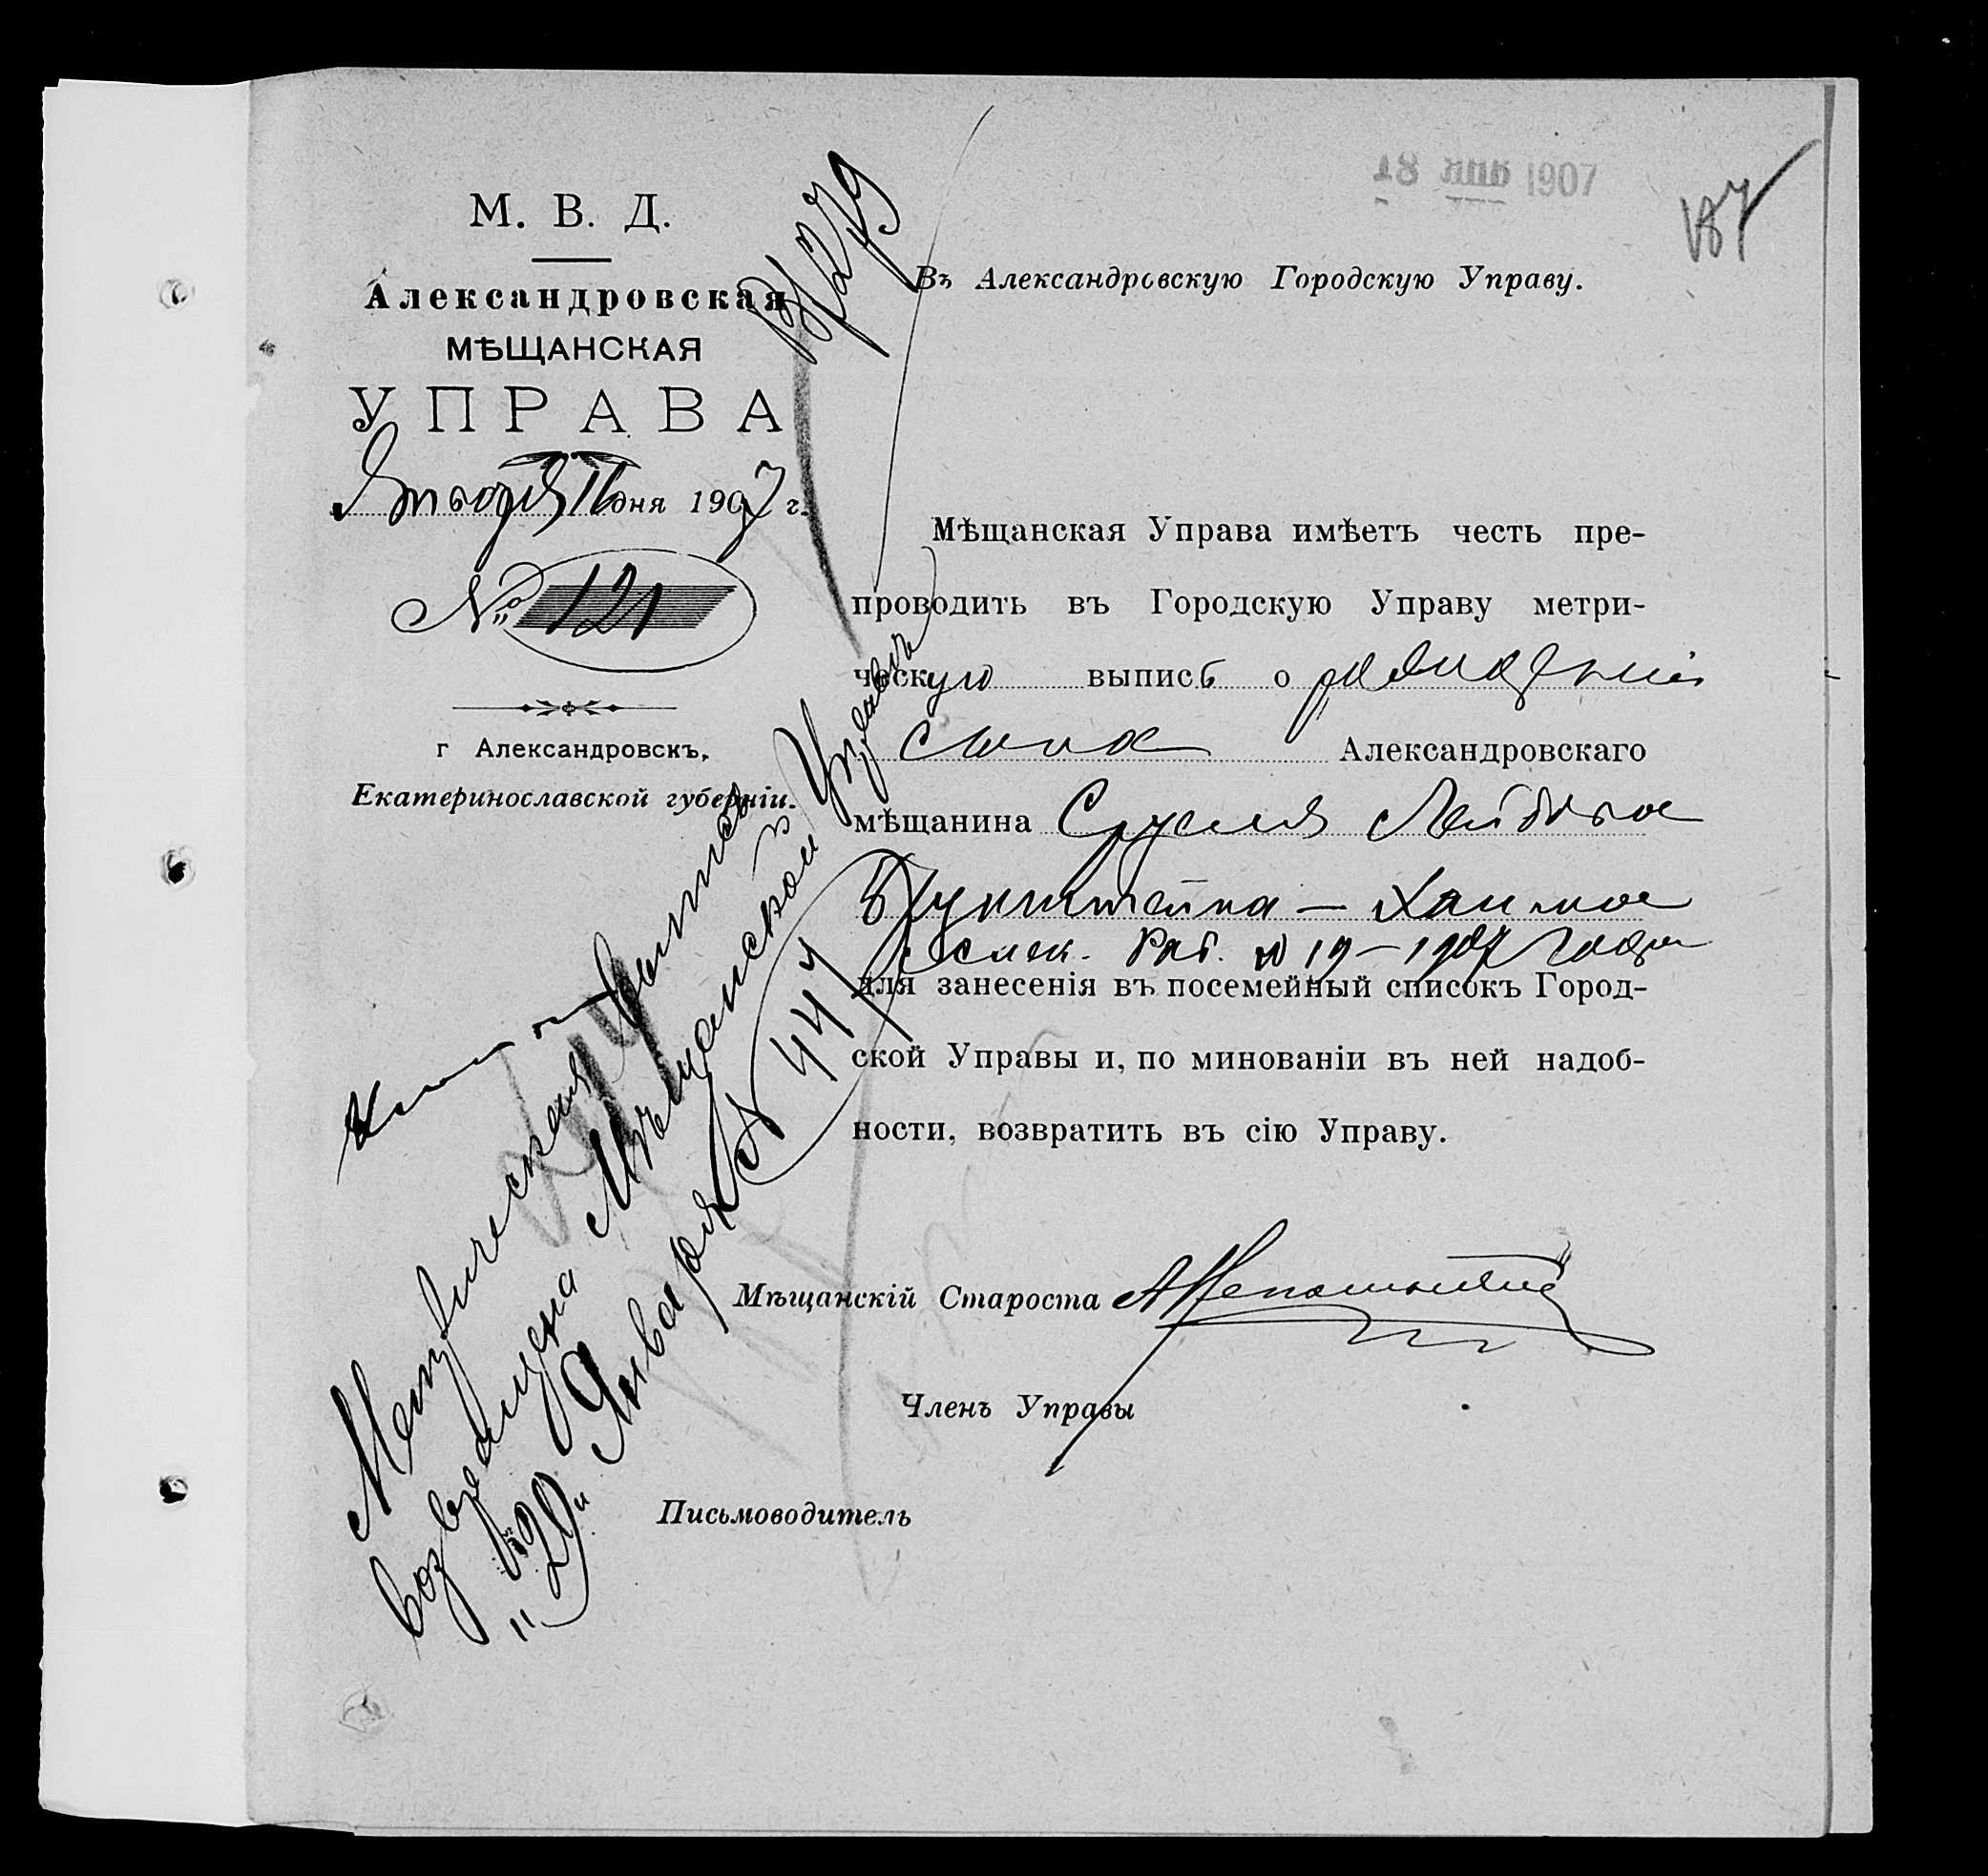 18 ЯНВ 1907
187
М. В. Д.
Александровская
МѢЩАНСКАЯ
УПРАВА
Января 16 дня 1907 г.
№ 121
г Александровскъ,
Екатеринославской губерніи.
Вх 279
Въ Александровскую Городскую Управу.
Мѣщанская Управа имѣетъ честь пре-
проводить въ Городскую Управу метри-
ческую выпись о рожденіи
сына Александровскаго
мѣщанина Сруля Лейбова
Бунштейна — Хаима
Раб. № 19 – 1907 года
для занесенія въ посемейный списокъ Город-
ской Управы и, по минованіи въ ней надоб-
ности, возвратить въ сію Управу.
Мѣщанскій Староста
Членъ Управы
Письмоводитель
Метрическая выпись
возвращена Мѣщанской Управѣ
"29" Января № 444